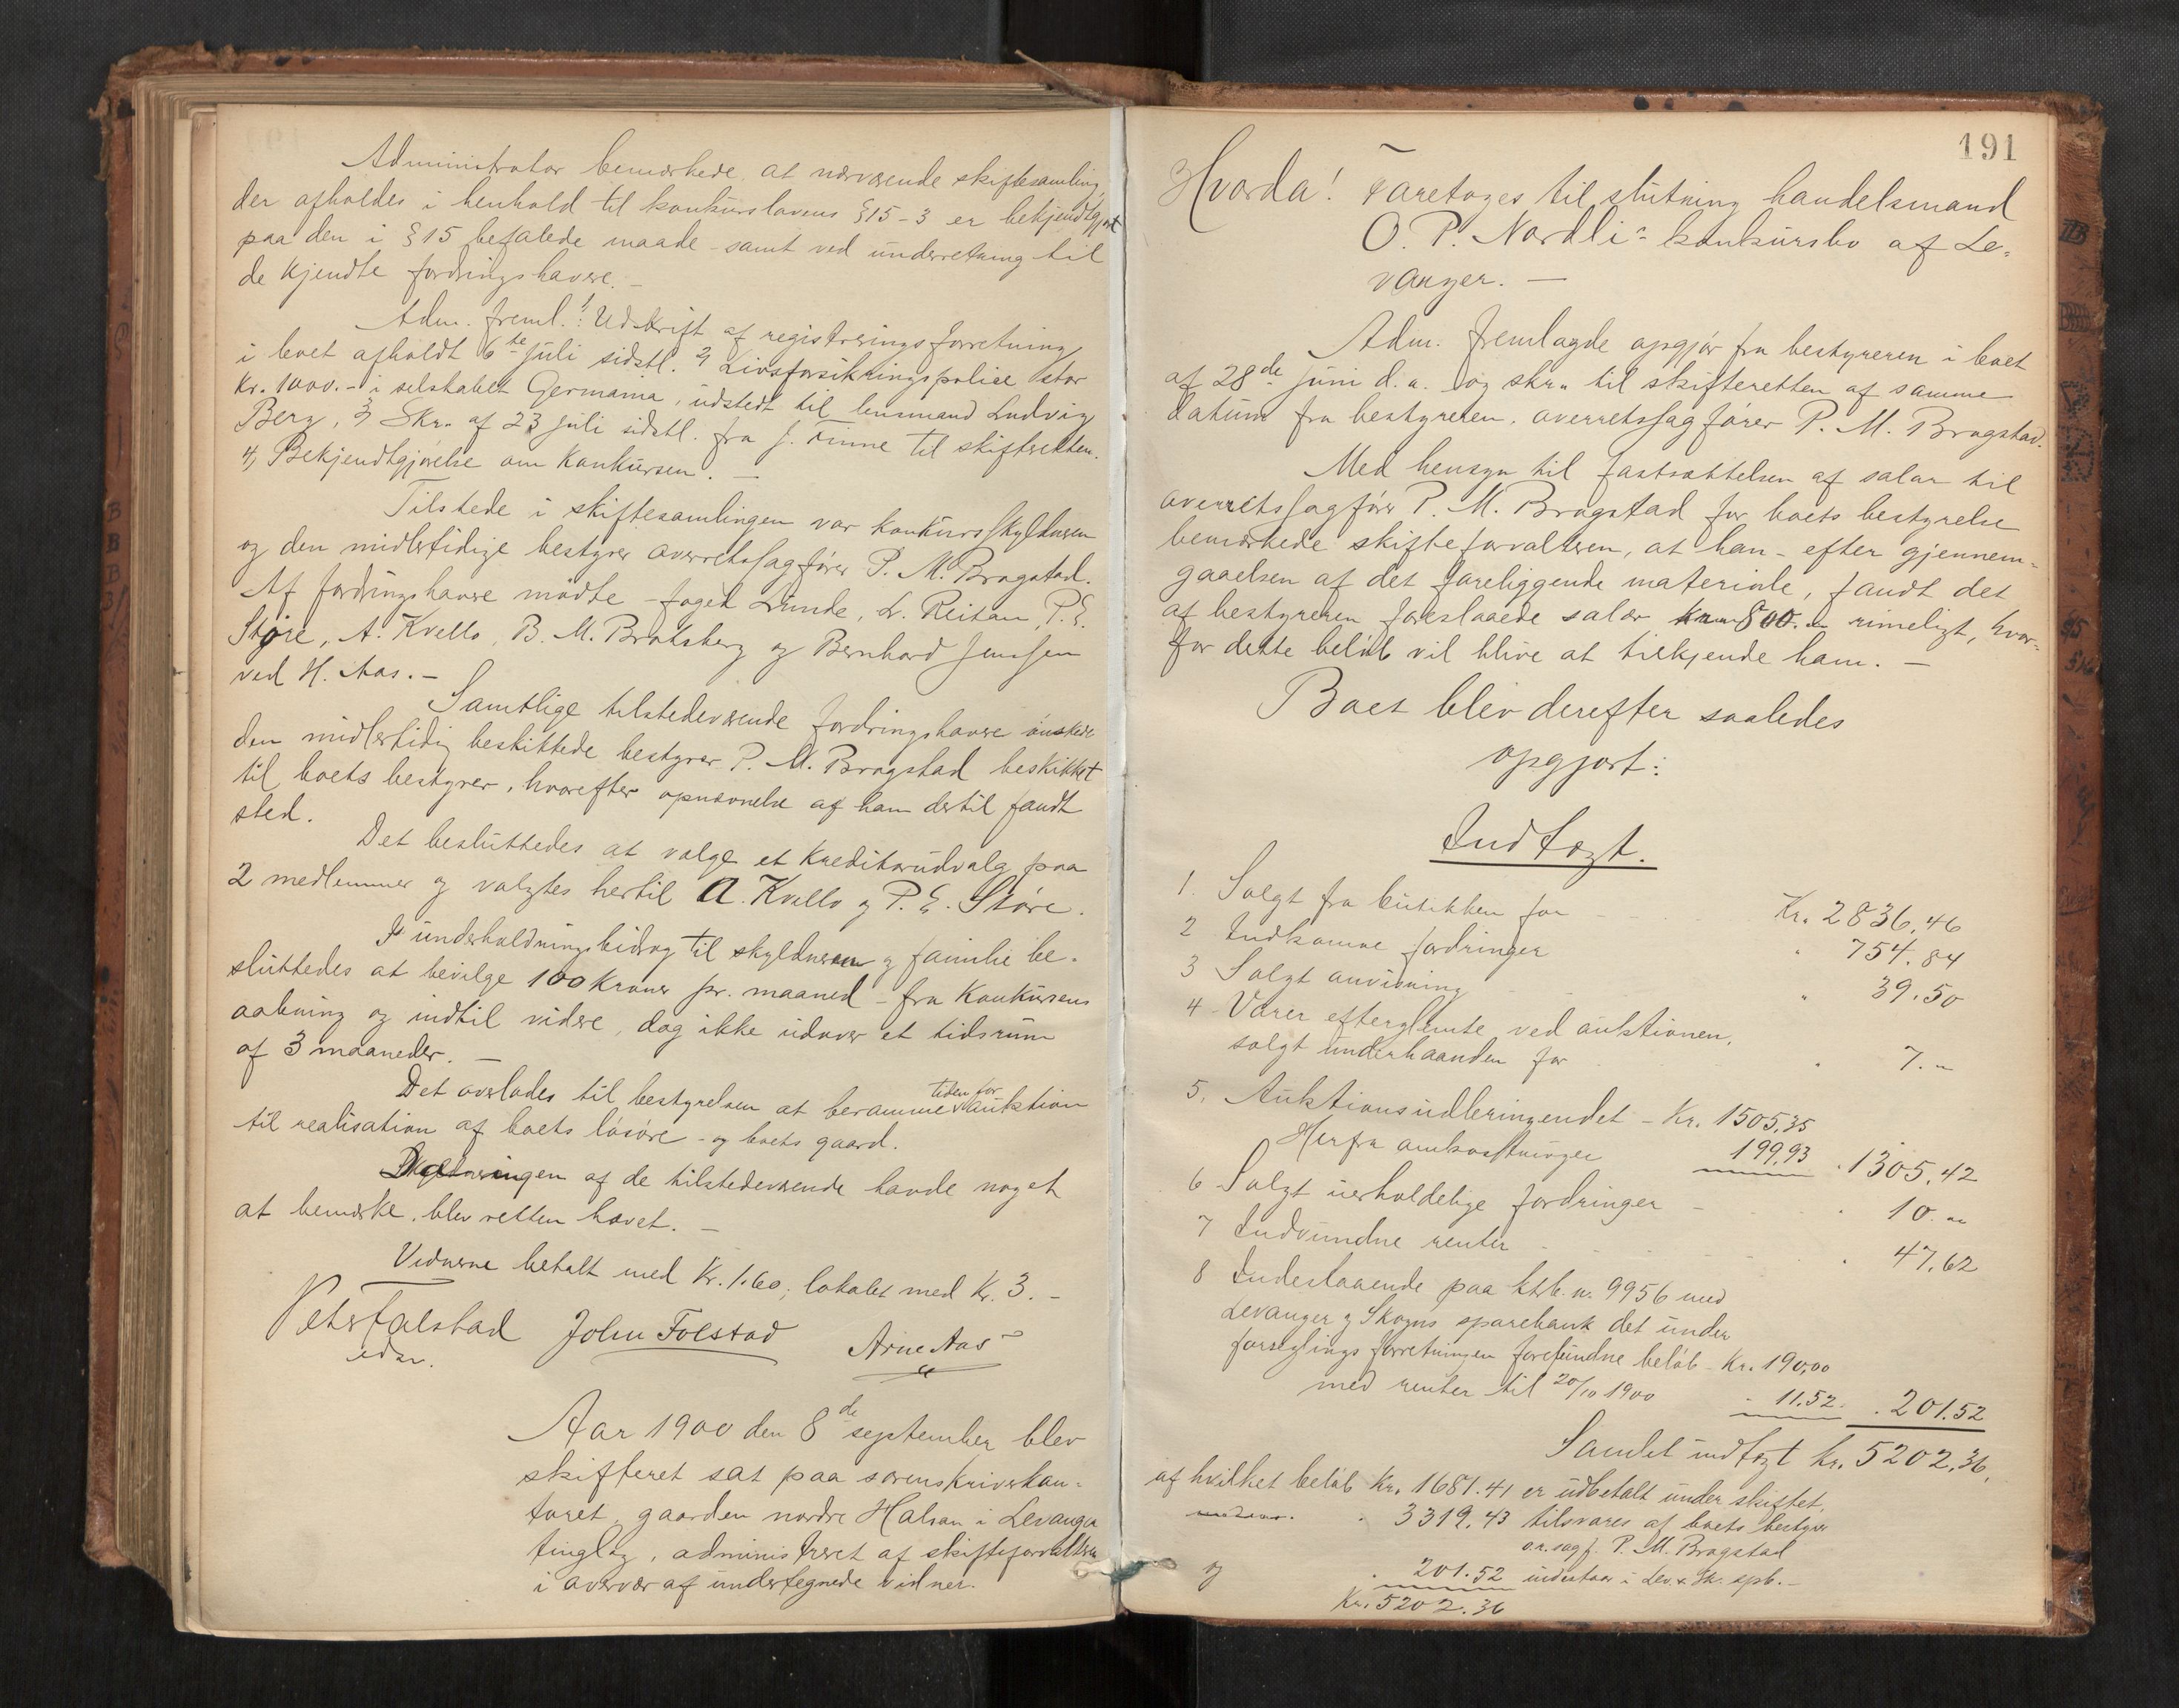 Administrator bemærkede, at nærværende skiftesamling,
der afholdes i henhold til konkurslovens §15-3 er bekjendtgjort
paa den i §15 befalede maade - samt ved underretning til
de kjendte fordringshavere. -
Adm. freml. 1) Udskrift af registreringsforretning
i boet afholdt 6te juli sidstl. 2) Livsforsikringspolice stor
Kr. 1000.- i selskabet Germania, udstedt til lensmand Ludvig
Berg, 3) Skr. af 23 juli sidstl. fra J. Finne til skifteretten.
4) Bekjendtgjørelse om Konkursen. -
Tilstede i skiftesamlingen var konkursskyldneren
og den midlertidige bestyrer overretssagfører P. M. Bragstad.
Af fordringshavere mødte - foged Lunde, L. Reitan, P. E.
Støre, A. Kvello, B. M. Bratsberg og Bernhard Jenssen
ved H. Aas. -
Samtlige tilstedeværende fordringshavere ønskede
den midlertidig beskikkede bestyrer P. M. Bragstad beskikket
til boets bestyrer, hvorefter opnævnelse af ham dertil fandt
sted.
Det besluttedes at vælge et Kreditorudvalg paa
2 medlemmer og valgtes hertil A. Kvello og P. E. Støre.
I underholdningsbidrag til skyldneren og familie be-
sluttedes at bevilge 100 Kroner pr. maaned - fra Konkursens
aabning og indtil videre, dog ikke udover et tidsrum
af 3 maaneder. -
Det overlodes til bestyrelsen at beramme tiden for auktion
til realisation af boets løsøre - og boets gaard.
Da ingen af de tilstedeværende havde noget
at bemærke, blev retten hævet. -
Vidnerne betalt med Kr. 1.60; lokalet med Kr. 3. -
Peter Falstad John Folstad Arne Aas
Aar 1900 den 8de september blev
skifteret sat paa sorenskriverkon-
toret, gaarden nordre Halsan i Levanger
tinglag, administreret af skifteforvalteren
i overvær af undertegnede vidner.
191
Hvorda! Foretoges til slutning handelsmand
O. P. Nordli's konkursbo af Le-
vanger. -
Adm. fremlagde opgjør fra bestyreren i boet
af 28de juni d. a. og skr. til skifteretten af samme
datum fra bestyreren, overretssagfører P. M. Bragstad.
Med hensyn til fastsættelsen af salær til
overretssagfører P. M. Bragstad for boets bestyrelse
bemærkede skifteforvalteren, at han - efter gjennem-
gaaelsen af det foreliggende materiale, fandt det
af bestyreren foreslaaede salær kr. 800.- rimeligt, hvor-
for dette beløb vil blive at tilkjende ham. -
Boet blev derefter saaledes
opgjort:
Indtægt.
1. Solgt fra butikken for Kr. 2836.46
2 Indkomne fordringer " 754.84
3 Solgt anvisning " 39.50
4 Varer efterglemte ved auktionen,
solgt underhaanden for " 7.-
5. Auktionsudbringendet - Kr. 1505.35
Herfra omkostninger 199.93 " 1305.42
6 Solgt uerholdelige fordringer - " 10.-
7 Indvundne renter - " 47.62
8 Indestaaende paa ktrb. n. 9956 med
Levanger og Skogns sparebank det under
forseglingsforretningen forefundne beløb - Kr. 190,00
med renter til 20/10 1900 - 11.52. " 201.52
Samlet indtægt kr. 5202.36.
af hvilket beløb Kr. 1681.41 er udbetalt under skiftet,
" 3319.43 tilsvares af boets bestyrer
o.r.sagf. P. M. Bragstad
og " 201.52 indestaar i Lev. & Sk. spb. -
Kr. 5202.36